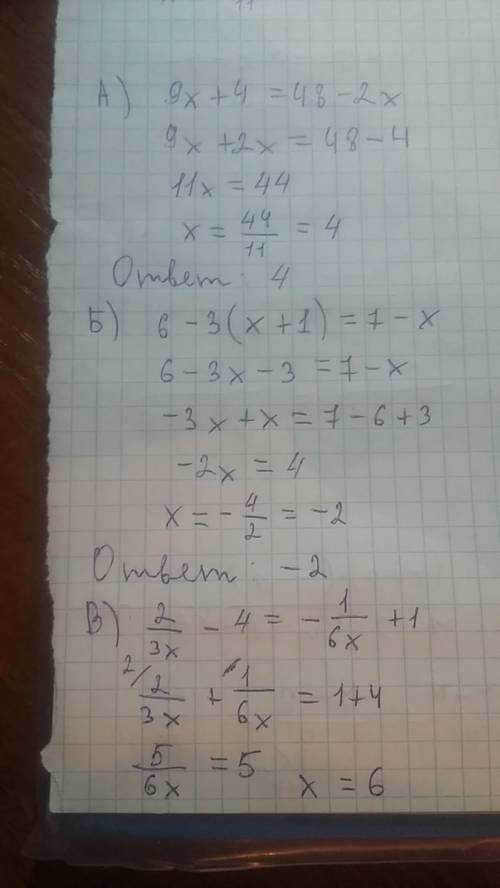 А) 9x + 4 = 48 - 2x
9x + 2x = 48 - 4
11x = 44
x = 44/11 = 4
Ответ: 4
Б) 6 - 3(x + 1) = 7 - x
6 - 3x - 3 = 7 - x
-3x + x = 7 - 6 + 3
-2x = 4
x = -4/2 = -2
Ответ: -2
В) 2/3x - 4 = -1/6x + 1
2/ 2/3x + 1/6x = 1+4
5/6x = 5 x = 6